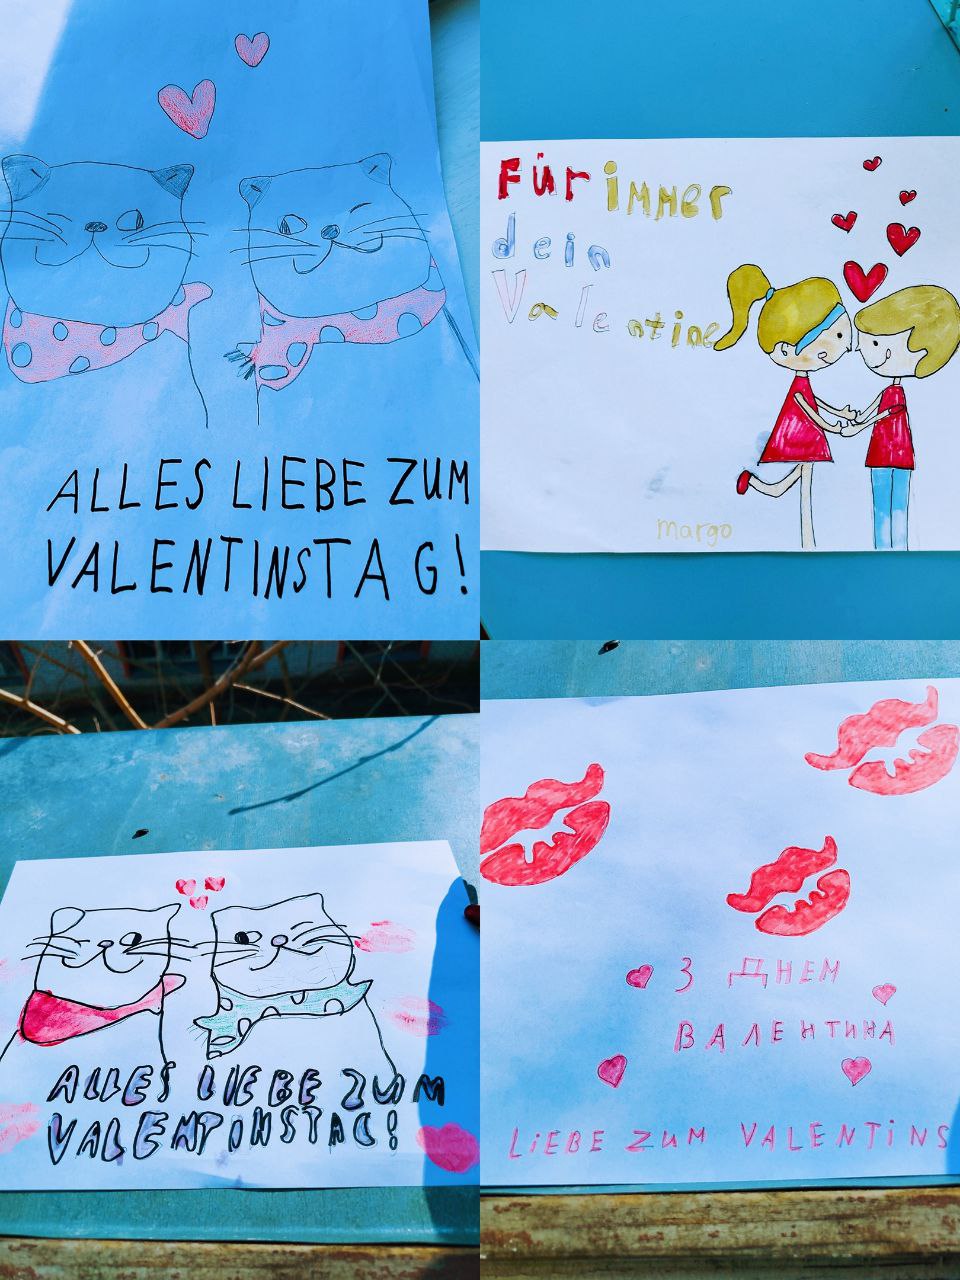 ALLES LIEBE ZUM
VALENTINSTAG!
Für immer
dein
Valentine
Margo
ALLES LIEBE ZUM
VALENTINSTAG!
З ДНЕМ
ВАЛЕНТИНА
LiEBE ZUM VALENTiNS